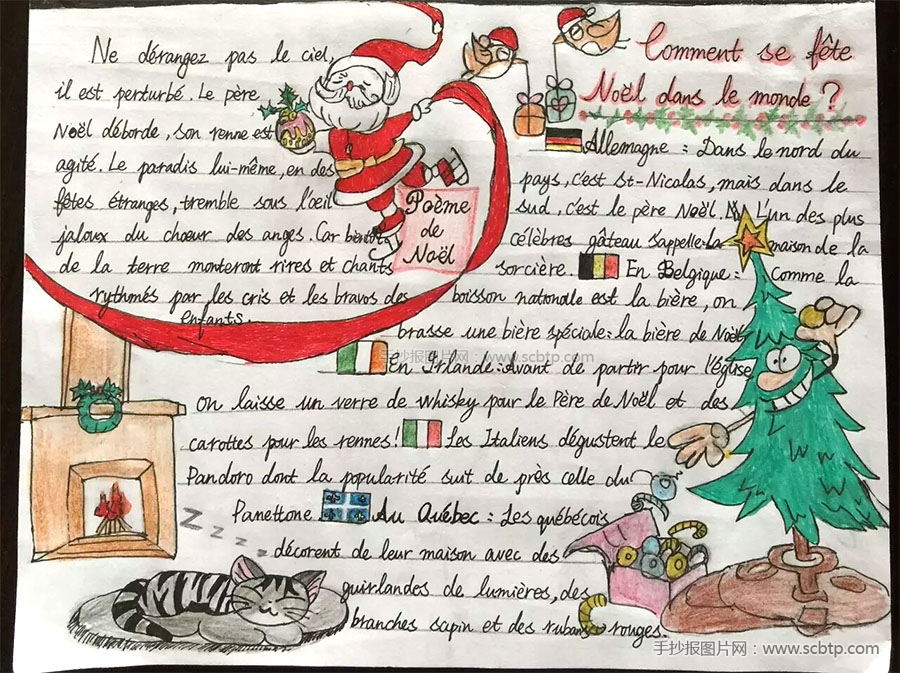 Ne dérangez pas le ciel,
il est perturbé. Le père
Noël déborde, son renne est
agité. Le paradis lui-même, en des
fêtes étranges, tremble sous l'œil
jaloux du chœur des anges. Car bientôt
de la terre monteront rires et chants
rythmés par les cris et les bravos des
enfants.
Poème
de
Noël
Comment se fête
Noël dans le monde ?
Allemagne : Dans le nord du
pays, c'est St-Nicolas, mais dans le
sud, c'est le père Noël. L'un des plus
célèbres gâteau s'appelle: La maison de la
sorcière. En Belgique : Comme la
boisson nationalle est la bière, on
brasse une bière spéciale: la bière de Noël
En Irlande: Avant de partir pour l'église
on laisse un verre de whisky pour le Père de Noël et des
carottes pour les rennes! Les Italiens dégustent le
Pandoro dont la popularité suit de près celle du
Panettone. Au Québec : Les québécois
décorent de leur maison avec des
guirlandes de lumières, des
branches sapin et des rubans rouges.
Zzzzz
手抄报图片网：www.scbtp.com
手抄报图片网：www.scbtp.com